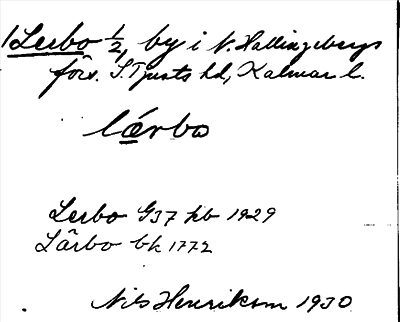 1 Lerbo 1/2, by i V. Hallingebergs
förs. S. Tjusts hd, Kalmar l.
lærbo
Lerbo G37 hb 1929
Lärbo bk 1772
Nils Henrikson 1930